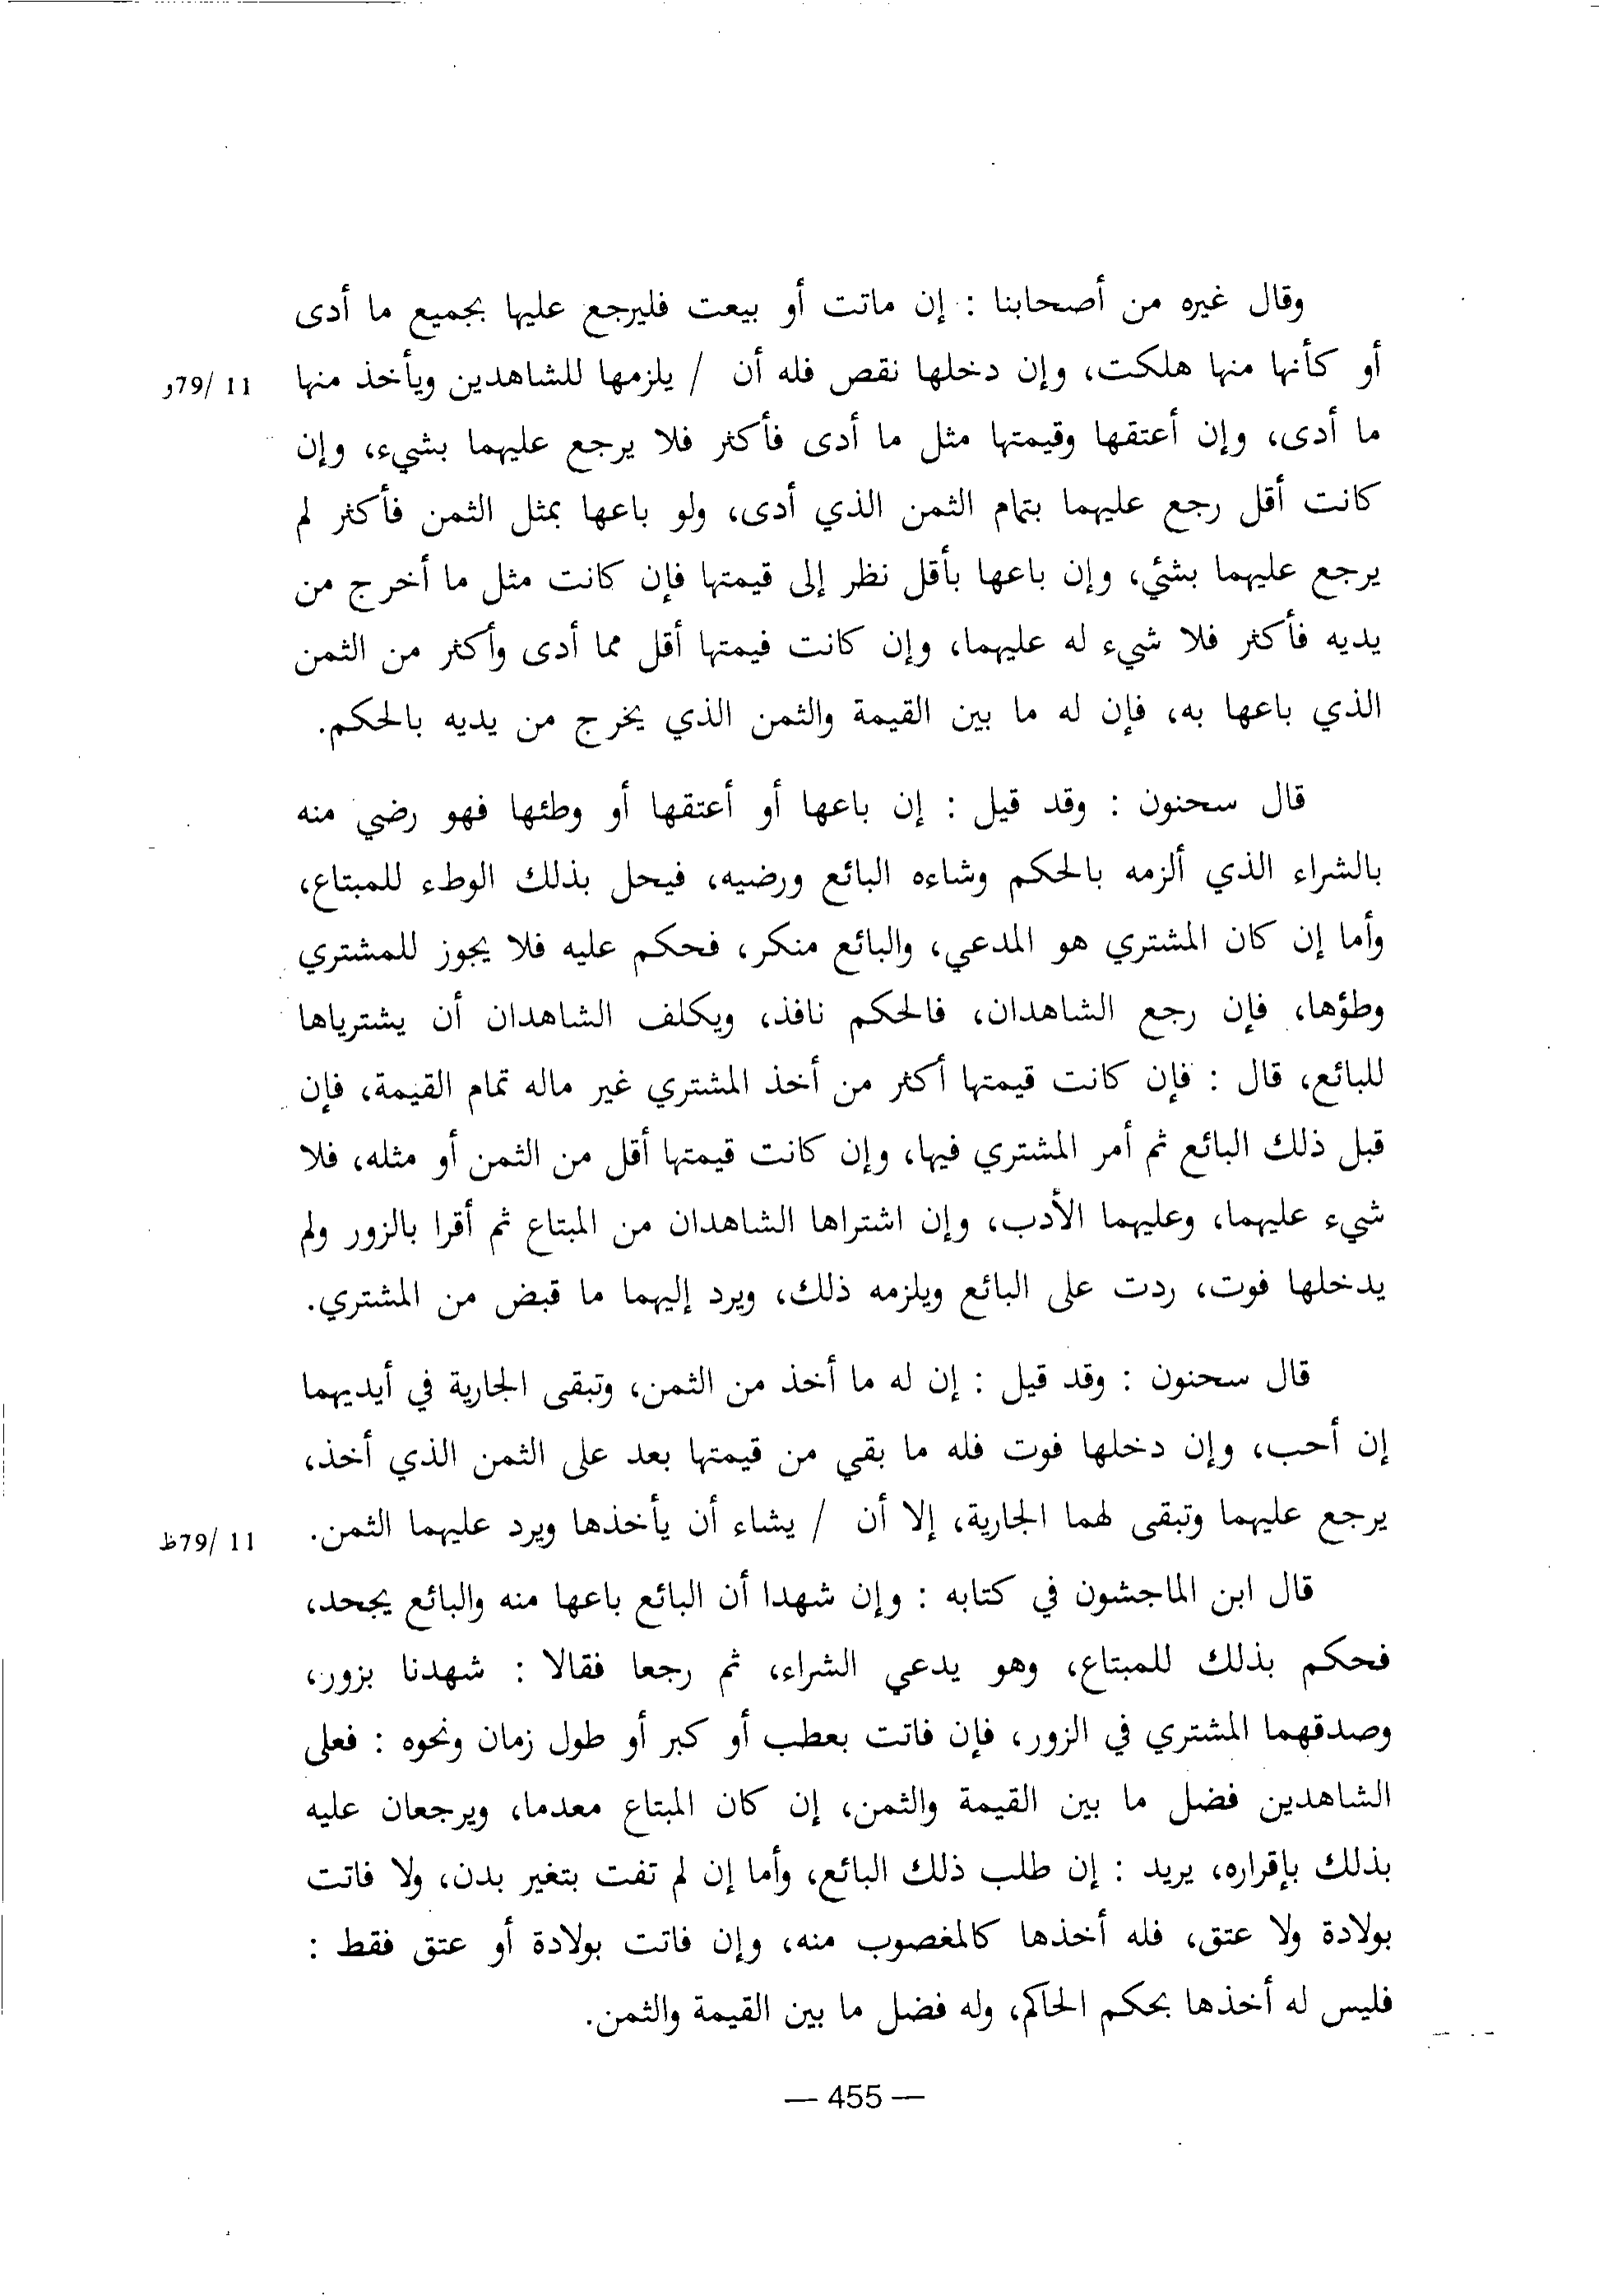 وقال غيره من أصحابنا : إن ماتت أو بيعت فليرجع عليها بجميع ما أدى
أو كأنها منها هلكت، وإن دخلها نقص فله أن / يلزمها للشاهدين ويأخذ منها
11 /79و
ما أدى، وإن أعتقها وقيمتها مثل ما أدى فأكثر فلا يرجع عليهما بشيء، وإن
كانت أقل رجع عليهما بتمام الثمن الذي أدى، ولو باعها بمثل الثمن فأكثر لم
يرجع عليهما بشئي، وإن باعها بأقل نظر إلى قيمتها فإن كانت مثل ما أخرج من
يديه فأكثر فلا شيء له عليهما، وإن كانت فيمتها أقل مما أدى وأكثر من الثمن
الذي باعها به، فإن له ما بين القيمة والثمن الذي يخرج من يديه بالحكم.
قال سحنون : وقد قيل : إن باعها أو أعتقها أو وطئها فهو رضي منه
بالشراء الذي ألزمه بالحكم وشاءه البائع ورضيه، فيحل بذلك الوطء للمبتاع،
وأما إن كان المشتري هو المدعي، والبائع منكر، فحكم عليه فلا يجوز للمشتري
وطؤها، فإن رجع الشاهدان، فالحكم نافذ، ويكلف الشاهدان أن يشترياها
للبائع، قال : فإن كانت قيمتها أكثر من أخذ المشتري غير ماله تمام القيمة، فإن
قبل ذلك البائع ثم أمر المشتري فيها، وإن كانت قيمتها أقل من الثمن أو مثله، فلا
شيء عليهما، وعليهما الأدب، وإن اشتراها الشاهدان من المبتاع ثم أقرا بالزور ولم
يدخلها فوت، ردت على البائع ويلزمه ذلك، ويرد إليهما ما قبض من المشتري.
قال سحنون : وقد قيل : إن له ما أخذ من الثمن، وتبقى الجارية في أيديهما
إن أحب، وإن دخلها فوت فله ما بقي من قيمتها بعد على الثمن الذي أخذ،
يرجع عليهما وتبقى لهما الجارية، إلا أن / يشاء أن يأخذها ويرد عليهما الثمن.
11 /79ظ
قال ابن الماجشون في كتابه : وإن شهدا أن البائع باعها منه والبائع يجحد،
فحكم بذلك للمبتاع، وهو يدعي الشراء، ثم رجعا فقالا : شهدنا بزور،
وصدقهما المشتري في الزور، فإن فاتت بعطب أو كبر أو طول زمان ونحوه : فعلى
الشاهدين فضل ما بين القيمة والثمن، إن كان المبتاع معدما، ويرجعان عليه
بذلك بإقراره، يريد : إن طلب ذلك البائع، وأما إن لم تفت بتغير بدن، ولا فاتت
بولادة ولا عتق، فله أخذها كالمغصوب منه، وإن فاتت بولادة أو عتق فقط :
فليس له أخذها بحكم الحاكم، وله فضل ما بين القيمة والثمن.
— 455 —